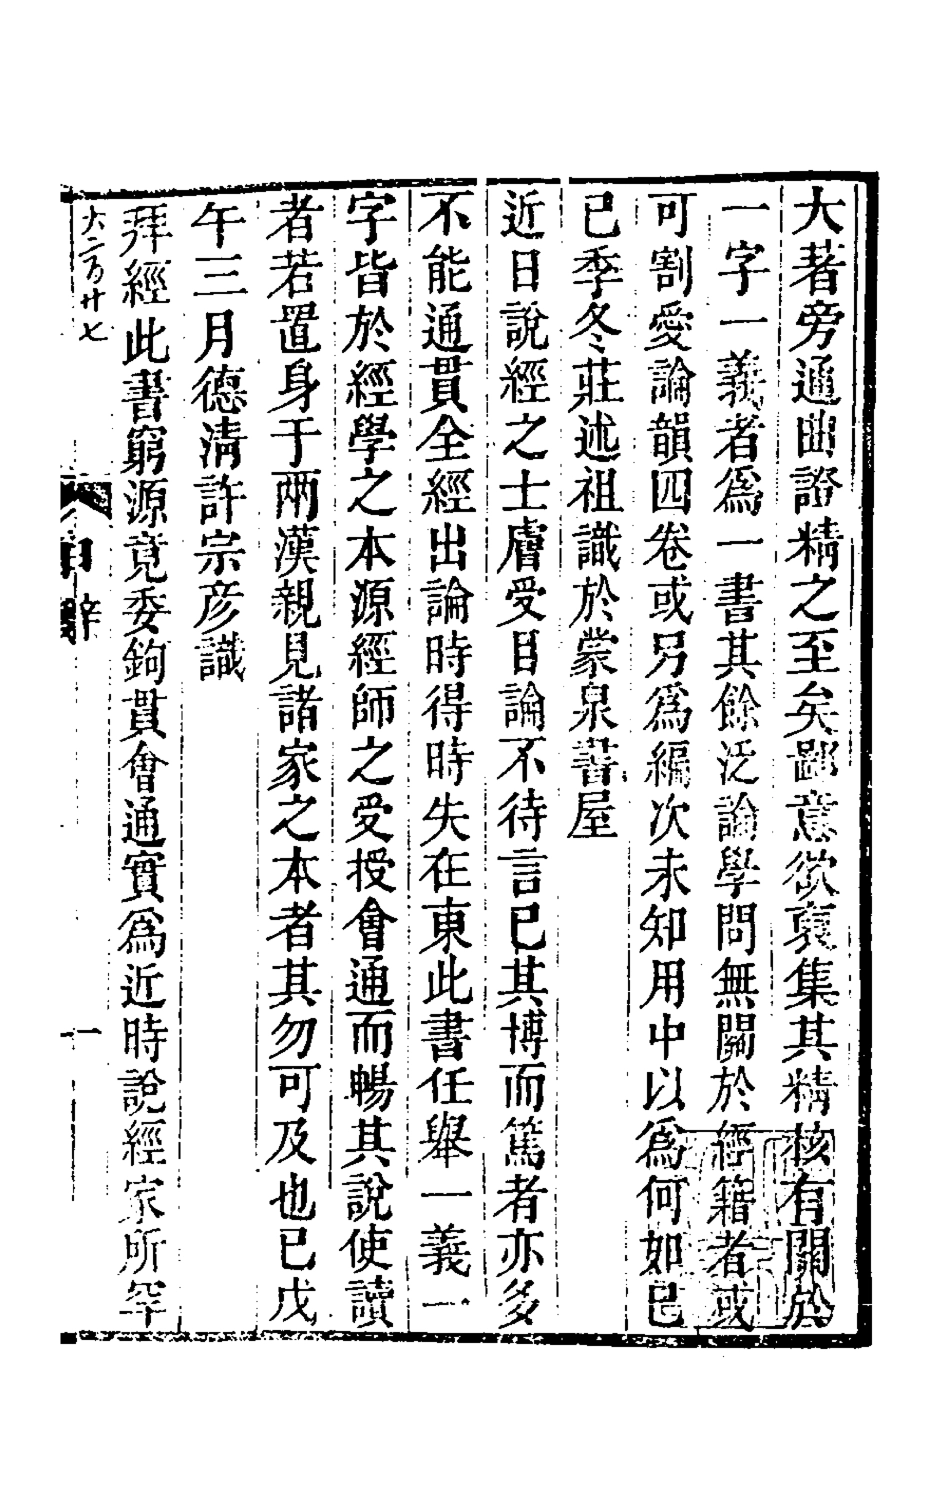 大著旁通曲證精之至矣鄙意欲裒集其精核有關於
一字一義者爲一書其餘泛論學問無關於經籍者或
可割愛論韻四卷或另爲編次未知用中以爲何如已
已季冬莊述祖識於蒙泉書屋
近日說經之士膚受目論不待言已其博而篤者亦多
不能通貫全經出論時得時失在東此書任舉一義一
字皆於經學之本源經師之受授會通而暢其說使讀
者若置身于兩漢親見諸家之本者其勿可及也已戊
午三月德淸許宗彥識
拜經此書窮源竟委鉤貫會通實爲近時說經家所罕
大二百廿七
一